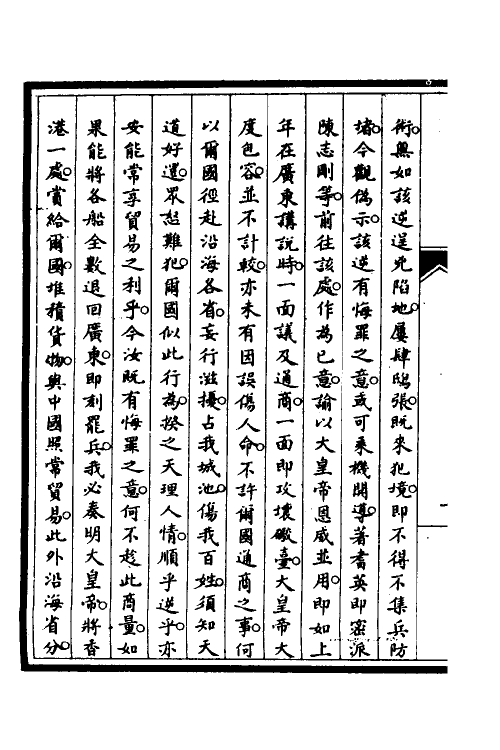 術無如該逆逞兇陷地屢肆鴟張既來犯境即不得不集兵防
堵今觀偽示該逆有悔罪之意或可乘機開導著耆英即密派
陳志剛等前往該處作為已意諭以大皇帝恩威並用即如上
年在廣東講說時一面議及通商一面即攻壞礮臺大皇帝大
度包容並不計較亦未有因誤傷人命不許爾國通商之事何
以爾國徑赴沿海各省妄行滋擾占我城池傷我百姓須知天
道好還眾怒難犯爾國似此行為揆之天理人情順乎逆乎亦
安能常享貿易之利乎今汝既有悔罪之意何不趁此商量如
果能將各船全數退回廣東即刻罷兵我必奏明大皇帝將香
港一處賞給爾國堆積貨物與中國照常貿易此外沿海省分